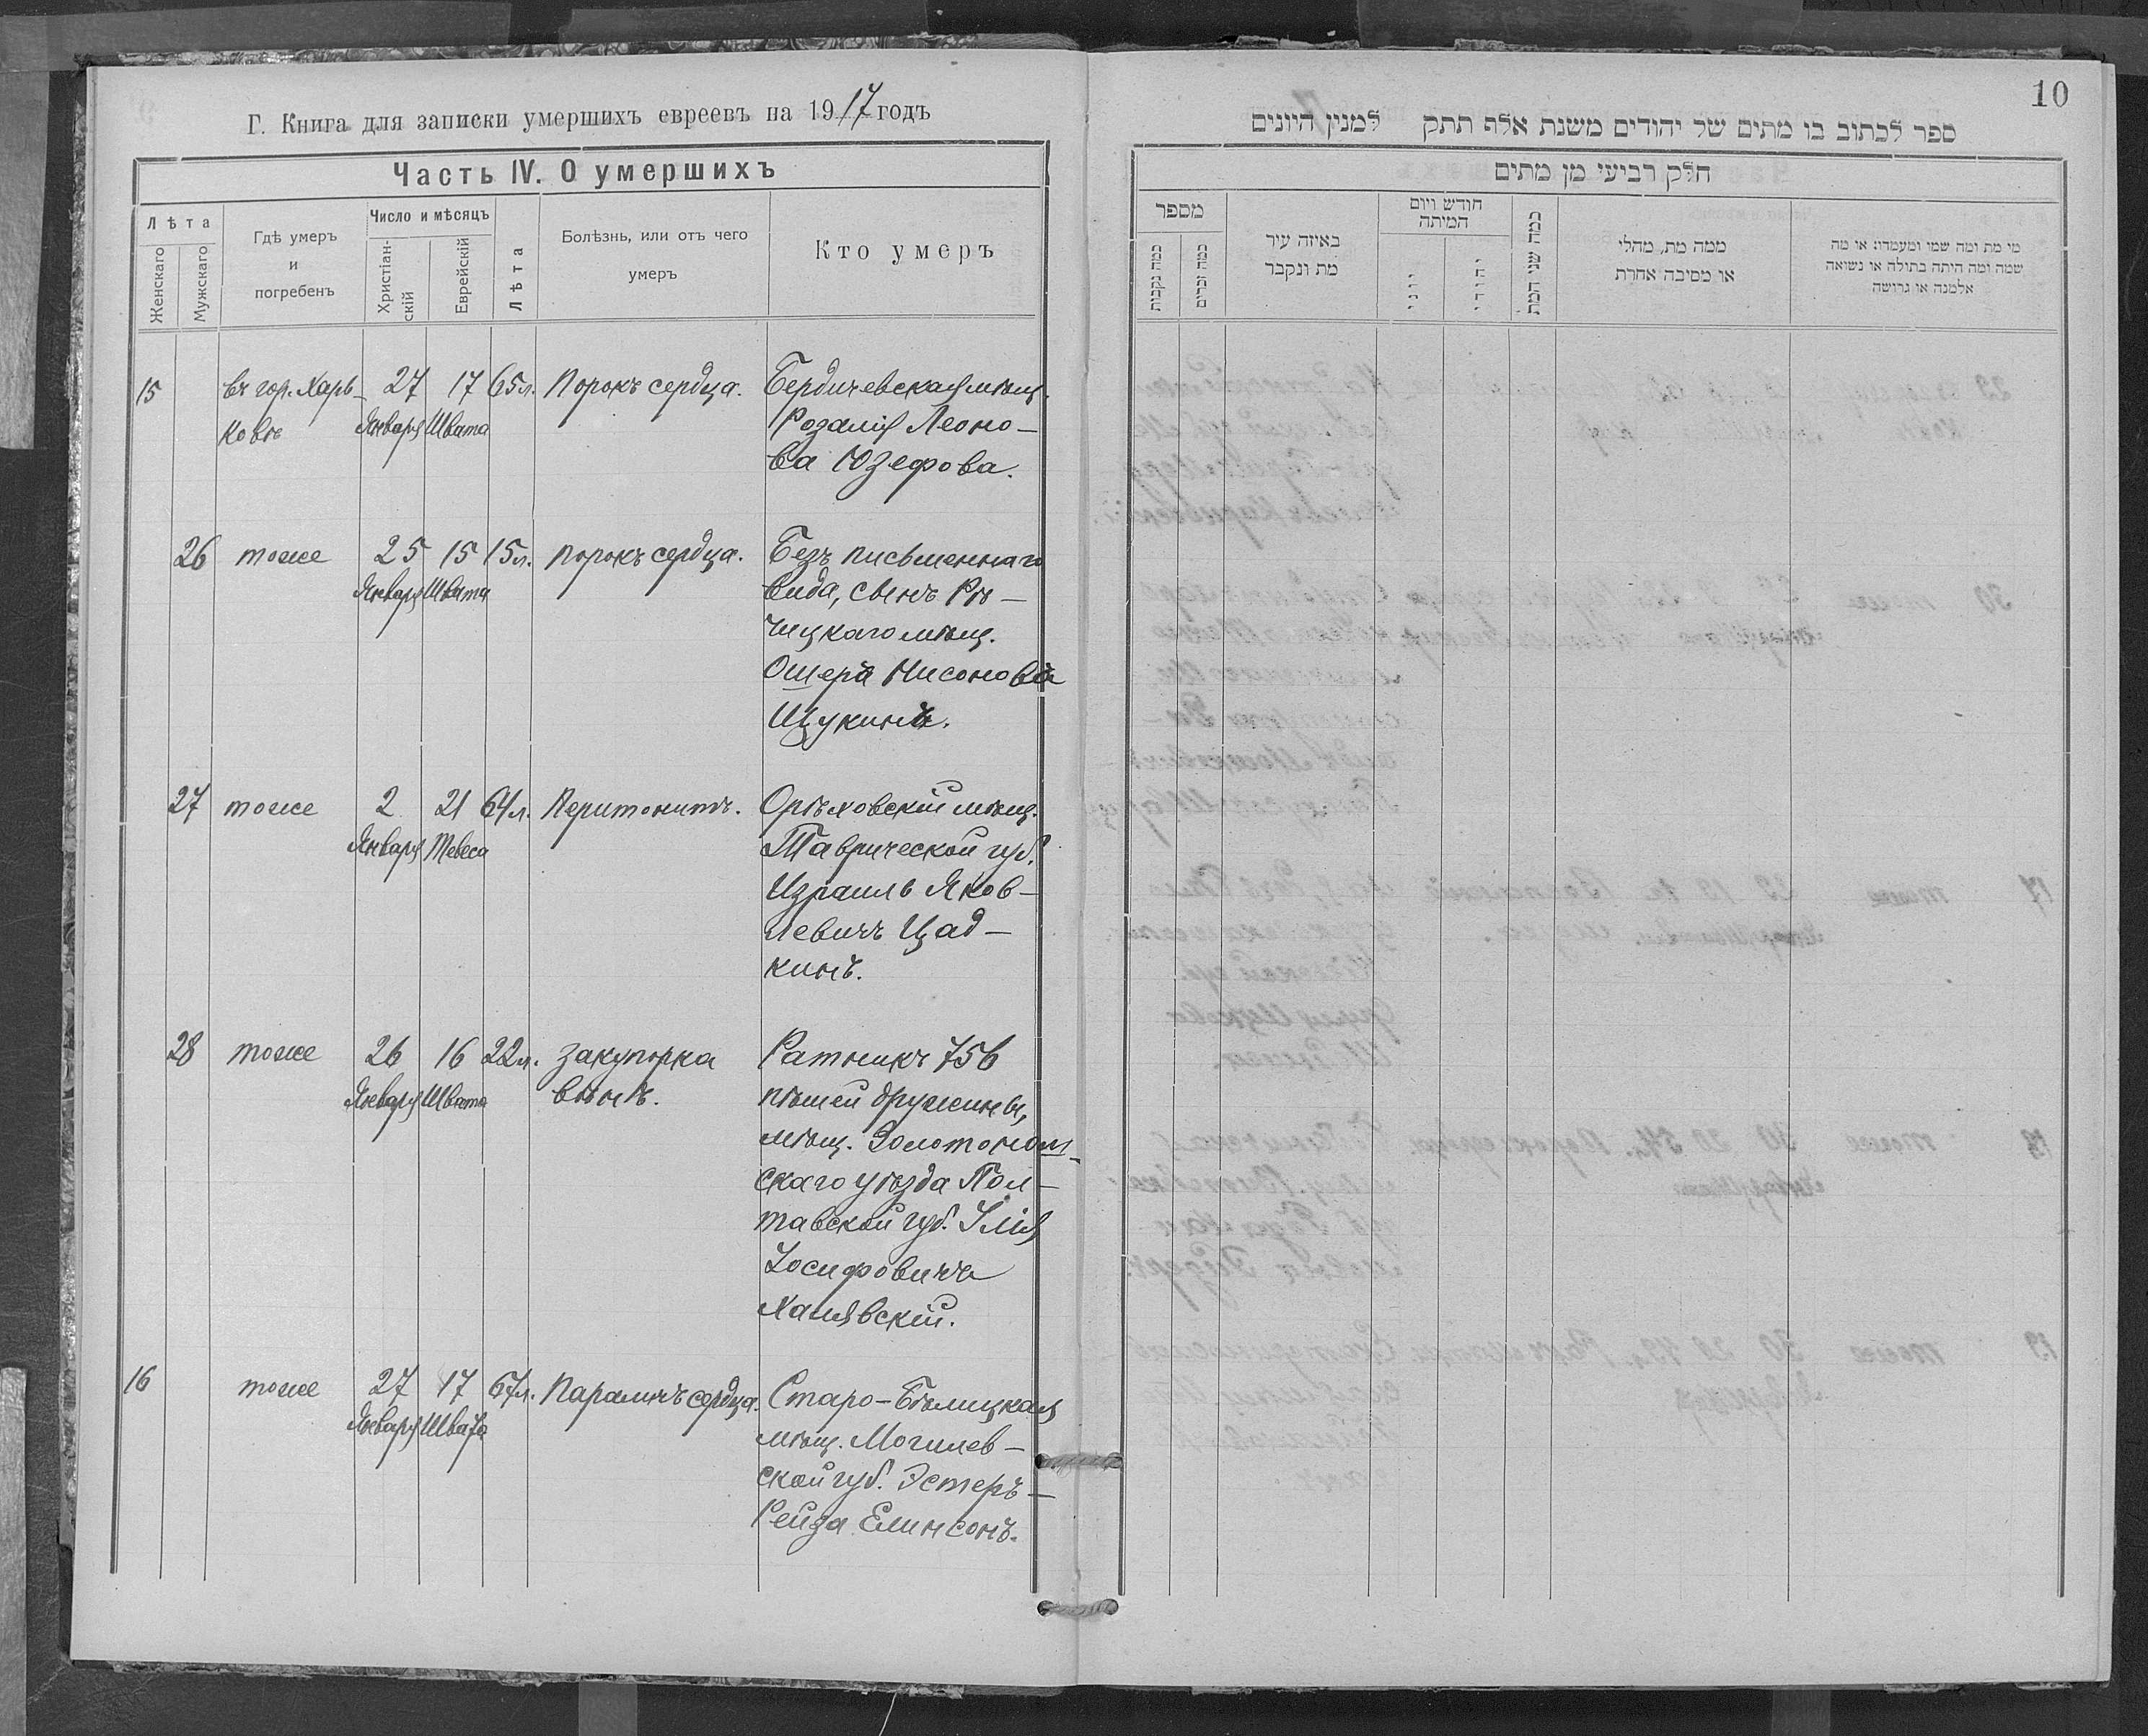 Г. Книга для записки умершихъ евреевъ на 1917 годъ
Часть IV. О умершихъ
Лѣта
Женскаго
Мужскаго
Гдѣ умеръ
и
погребенъ
Число и мѣсяцъ
Христіан-
скій
Еврейскій
Лѣта
Болѣзнь, или отъ чего
умеръ
Кто умеръ
15 въ гор. Харь- 27 17 65 л. Порокъ сердца. Бердичевская мѣщ.
ковѣ Января Швата Розалія Леоно-
ва Юзефова.
26 тоже 25 15 15 л. порокъ сердца. Безъ письменнаго
Января Швата вида, сынъ Рѣ-
чицкаго мѣщ.
Ошера Нисонова
Щукинъ.
27 тоже 2 21 64 л. Перитонитъ. Орѣховскій мѣщ.
Января Тевеса Таврической губ.
Израиль Яков-
левичъ Цад-
кинъ.
28 тоже 26 16 22 л. закупорка Ратникъ 756
Января Швата венъ. пѣшей дружины,
мѣщ. Золотонош-
скаго уѣзда Пол-
тавской губ. Илія
Іосифовичъ
Ханявскій.
16 тоже 27 17 67 л. Параличъ сердца. Старо-Бѣлицкая
Января Швата мѣщ. Могилев-
ской губ. Эстеръ-
Рейза Елинсонъ.
10
ספר לכתוב בו מתים של יהודים משנת אלף תתק למנין היונים
חלק רביעי מן מתים
מספר
כמה נקבות
כמה זכרים
באיזה עיר
מת ונקבר
חודש ויום
המיתה
יוני
יהודי
כמה שני המת
ממה מת, מחלי
או מסיבה אחרת
מי מת ומה שמו ומעמדו: או מה
שמה ומה היתה בתולה או נשואה
אלמנה או גרושה